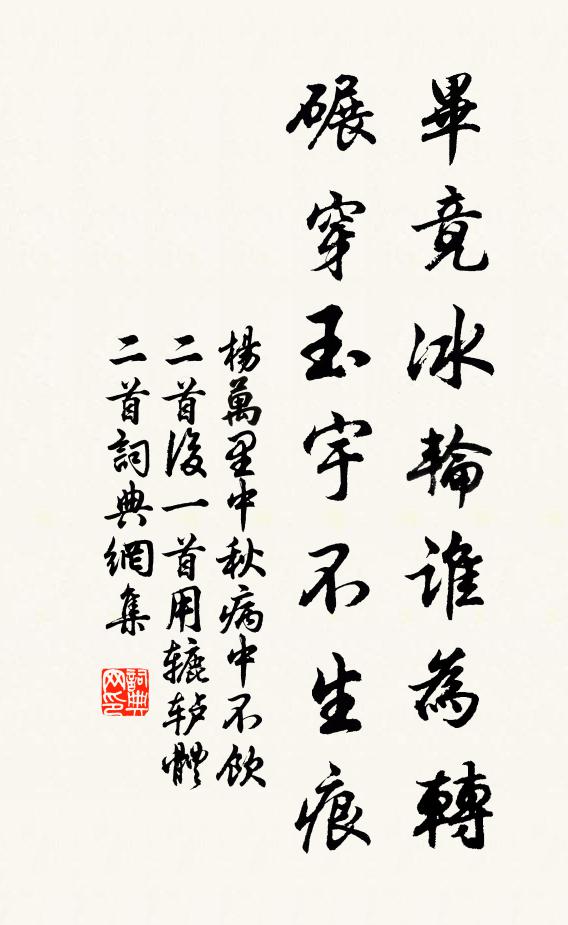 畢竟冰輪誰為轉
碾穿玉宇不生痕
楊萬里中秋病中不飲
二首後一首用辘轳體
二首詞典網集
詞典網印